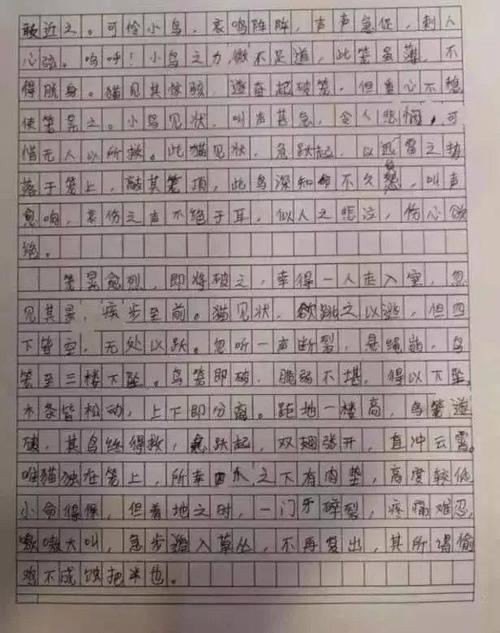 敢近之。可怜小鸟，哀鸣阵阵，声声急促，刺人
心弦。呜呼！小鸟之力微不足道，此笼虽薄，不
得脱身。猫见其惊骇，遂奋起破笼。但重心不稳
使笼晃之。小鸟见状，叫声甚急，令人悲悯，可
惜无人以所救。此猫见状，急跃起，以迅雷之势
落于笼上，敲其笼顶，此鸟深知命不久矣，叫声
愈响，哀伤之声不绝于耳，似人之悲泣，伤心欲
绝。
笼晃愈烈，即将破之，幸得一人走入室，忽
见其景，疾步至前。猫见状，欲跳之以逃，但四
下皆空，无处以跃。忽听一声断裂，悬绳崩，鸟
笼至三楼下坠。鸟笼即破，脆弱不堪，得以下坠
木条皆松动，上下即分离。距地一楼高，鸟笼遂
破，其鸟终得救，急跃起，双翅张开，直冲云霄
唯猫独在笼上，所幸其之下有肉垫，高度较低
小命得保，但着地之时，一门牙碎裂，疼痛难忍
嗷嗷大叫，急步潜入草丛，不再复出，其所谓偷
鸡不成蚀把米也。